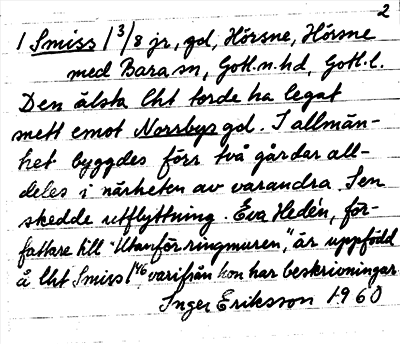 2
1 Smiss 1 3/8 jr, gd, Hörsne, Hörsne
med Bara sn, Gotl.n.hd, Gotl.l.
Den älsta lht torde ha legat
mett emot Norrbys gd. I allmän-
het byggdes förr två gårdar all-
deles i närheten av varandra. Sen
skedde utflyttning. Eva Hedén, för-
fattare till "Utanför ringmuren", är uppfödd
å lht Smiss 1 varifrån hon har beskrivningar
Inger Eriksson 1960